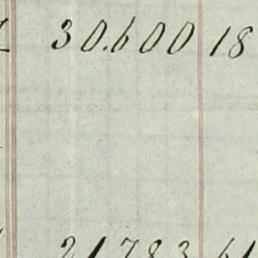 30.600 18
21783 61